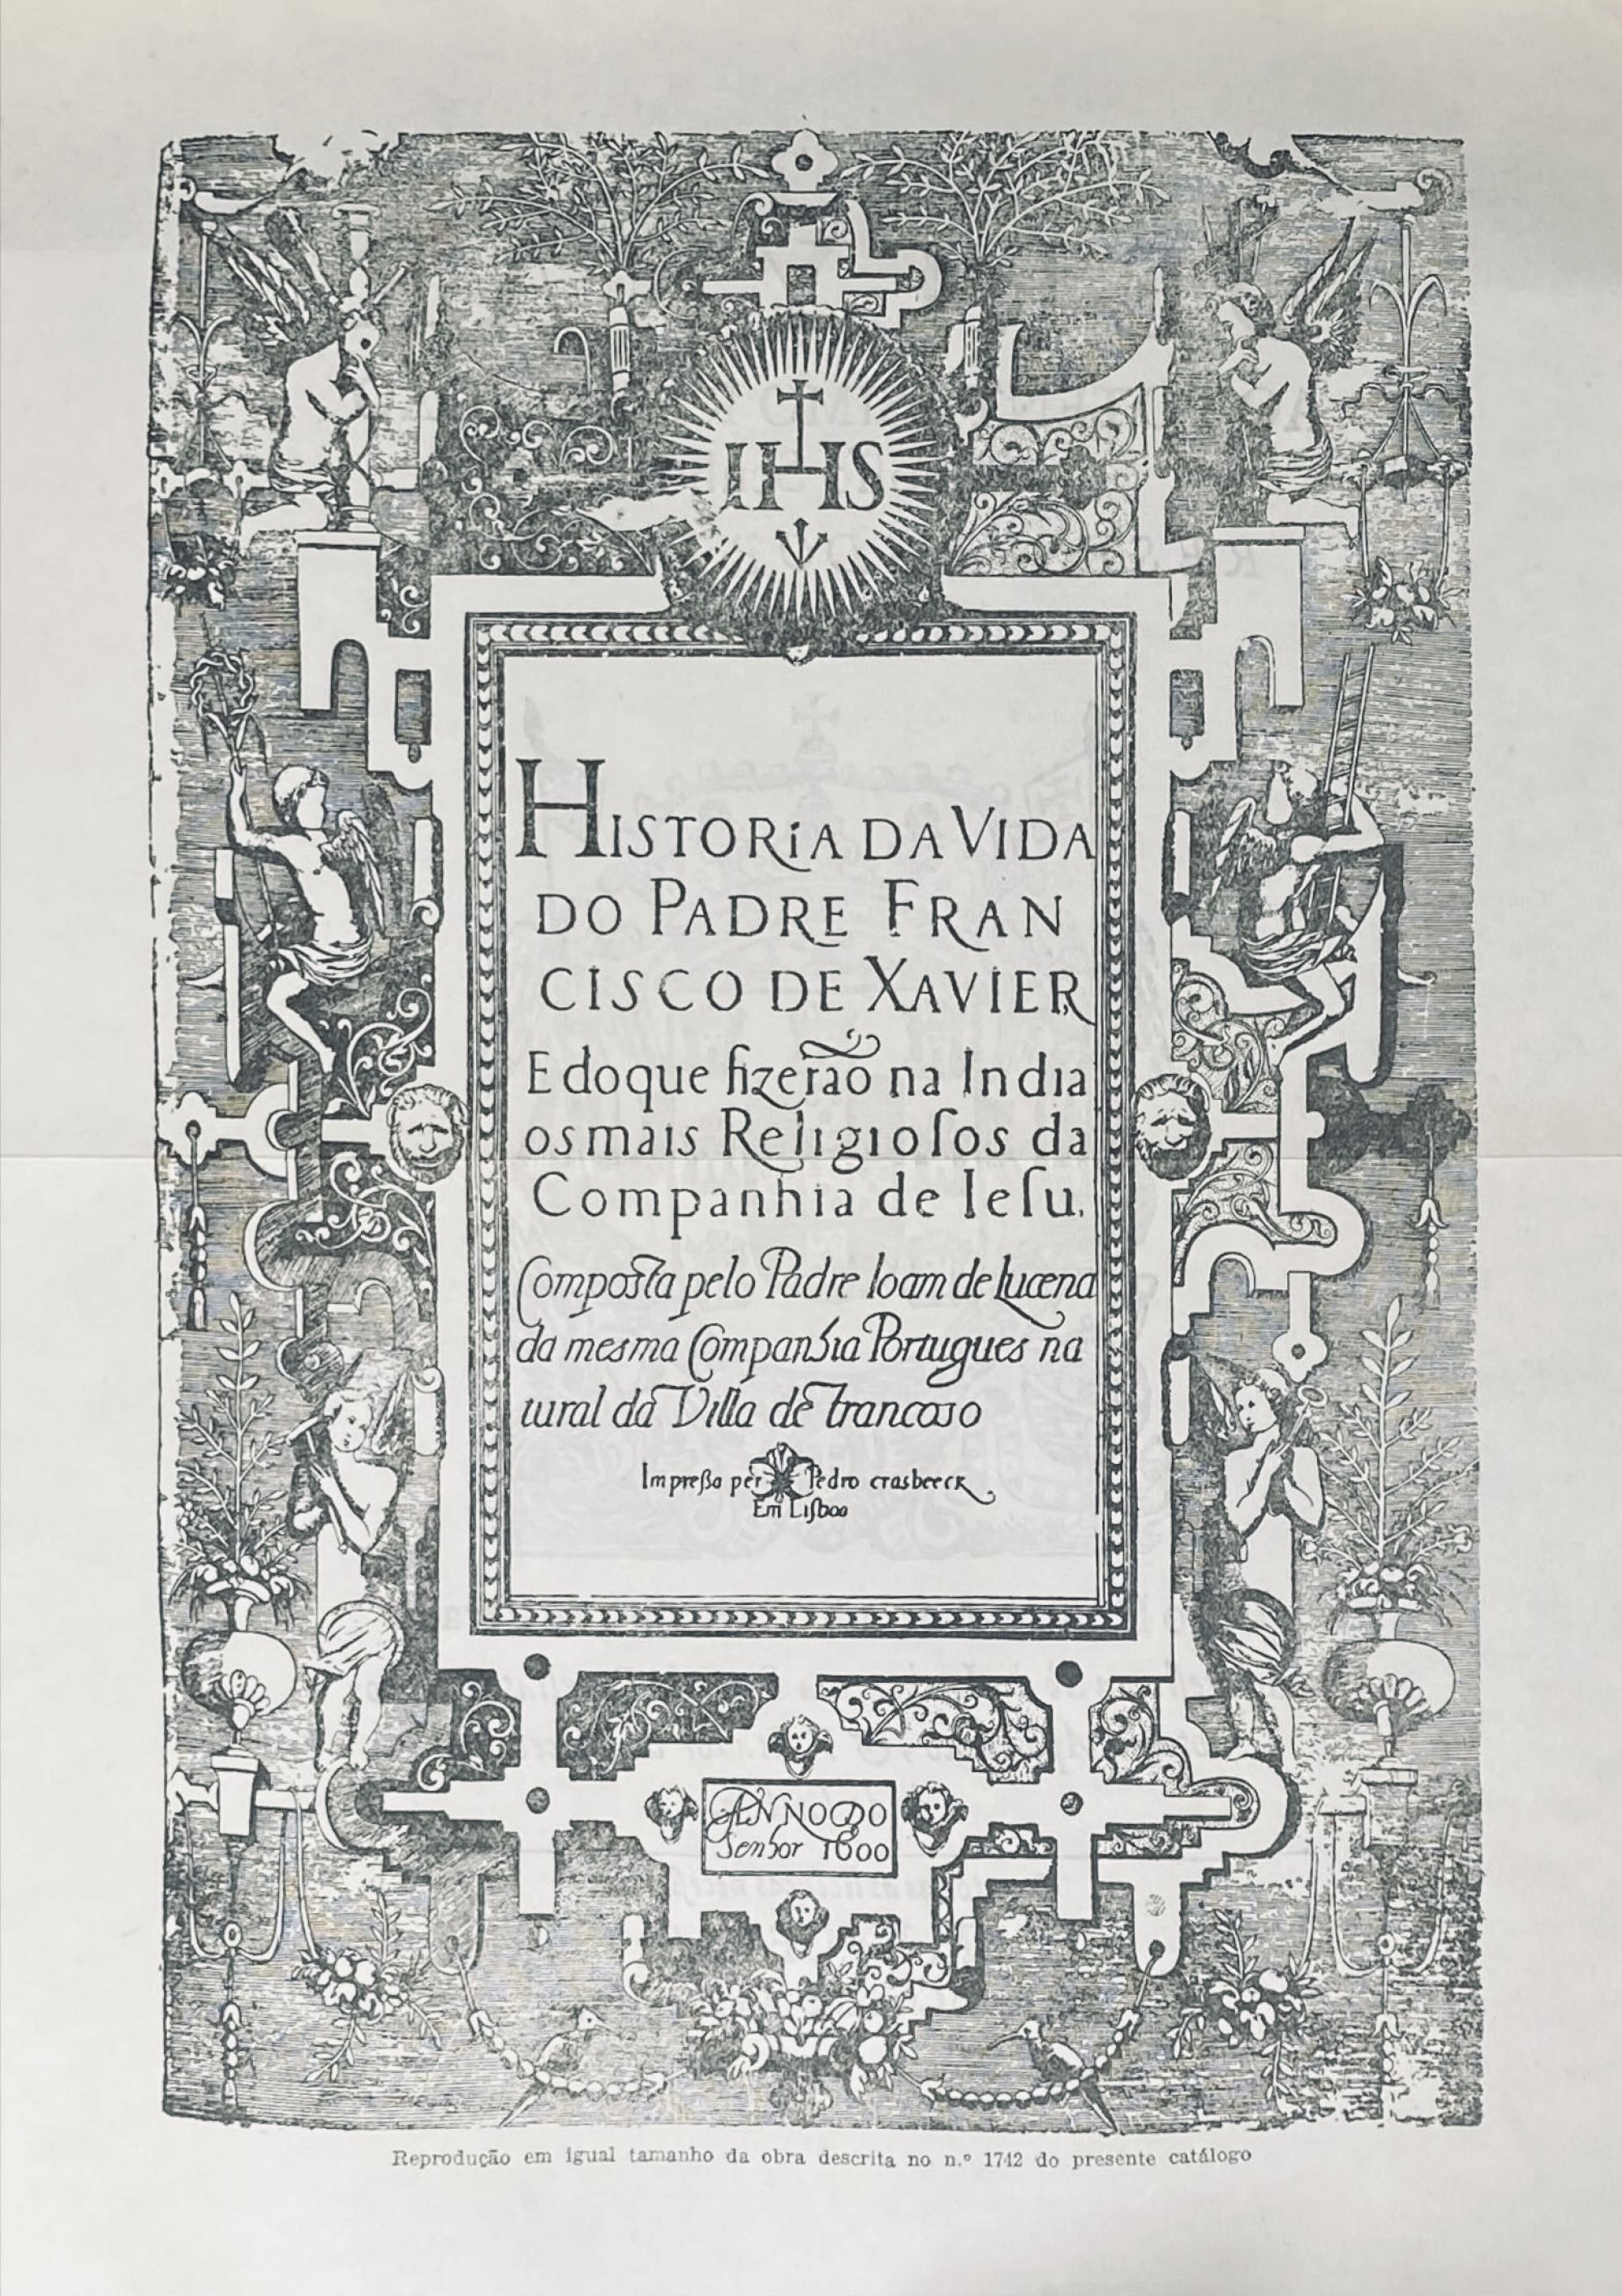 IHS
HISTORiA DA VIDA
DO PADRE FRAN
CISCO DE XAVIER
E do que fizerão na India
os mais Religioſos da
Companhia de Ieſu.
Composta pelo Padre Ioam de Lucena
da mesma Companhia Portugues na
tural da Villa de Trancoso
Impreßa per Pedro crasbeeck
Em Liſboa
ANNO DO
Senhor 1600
Reprodução em igual tamanho da obra descrita no n.º 1742 do presente catálogo